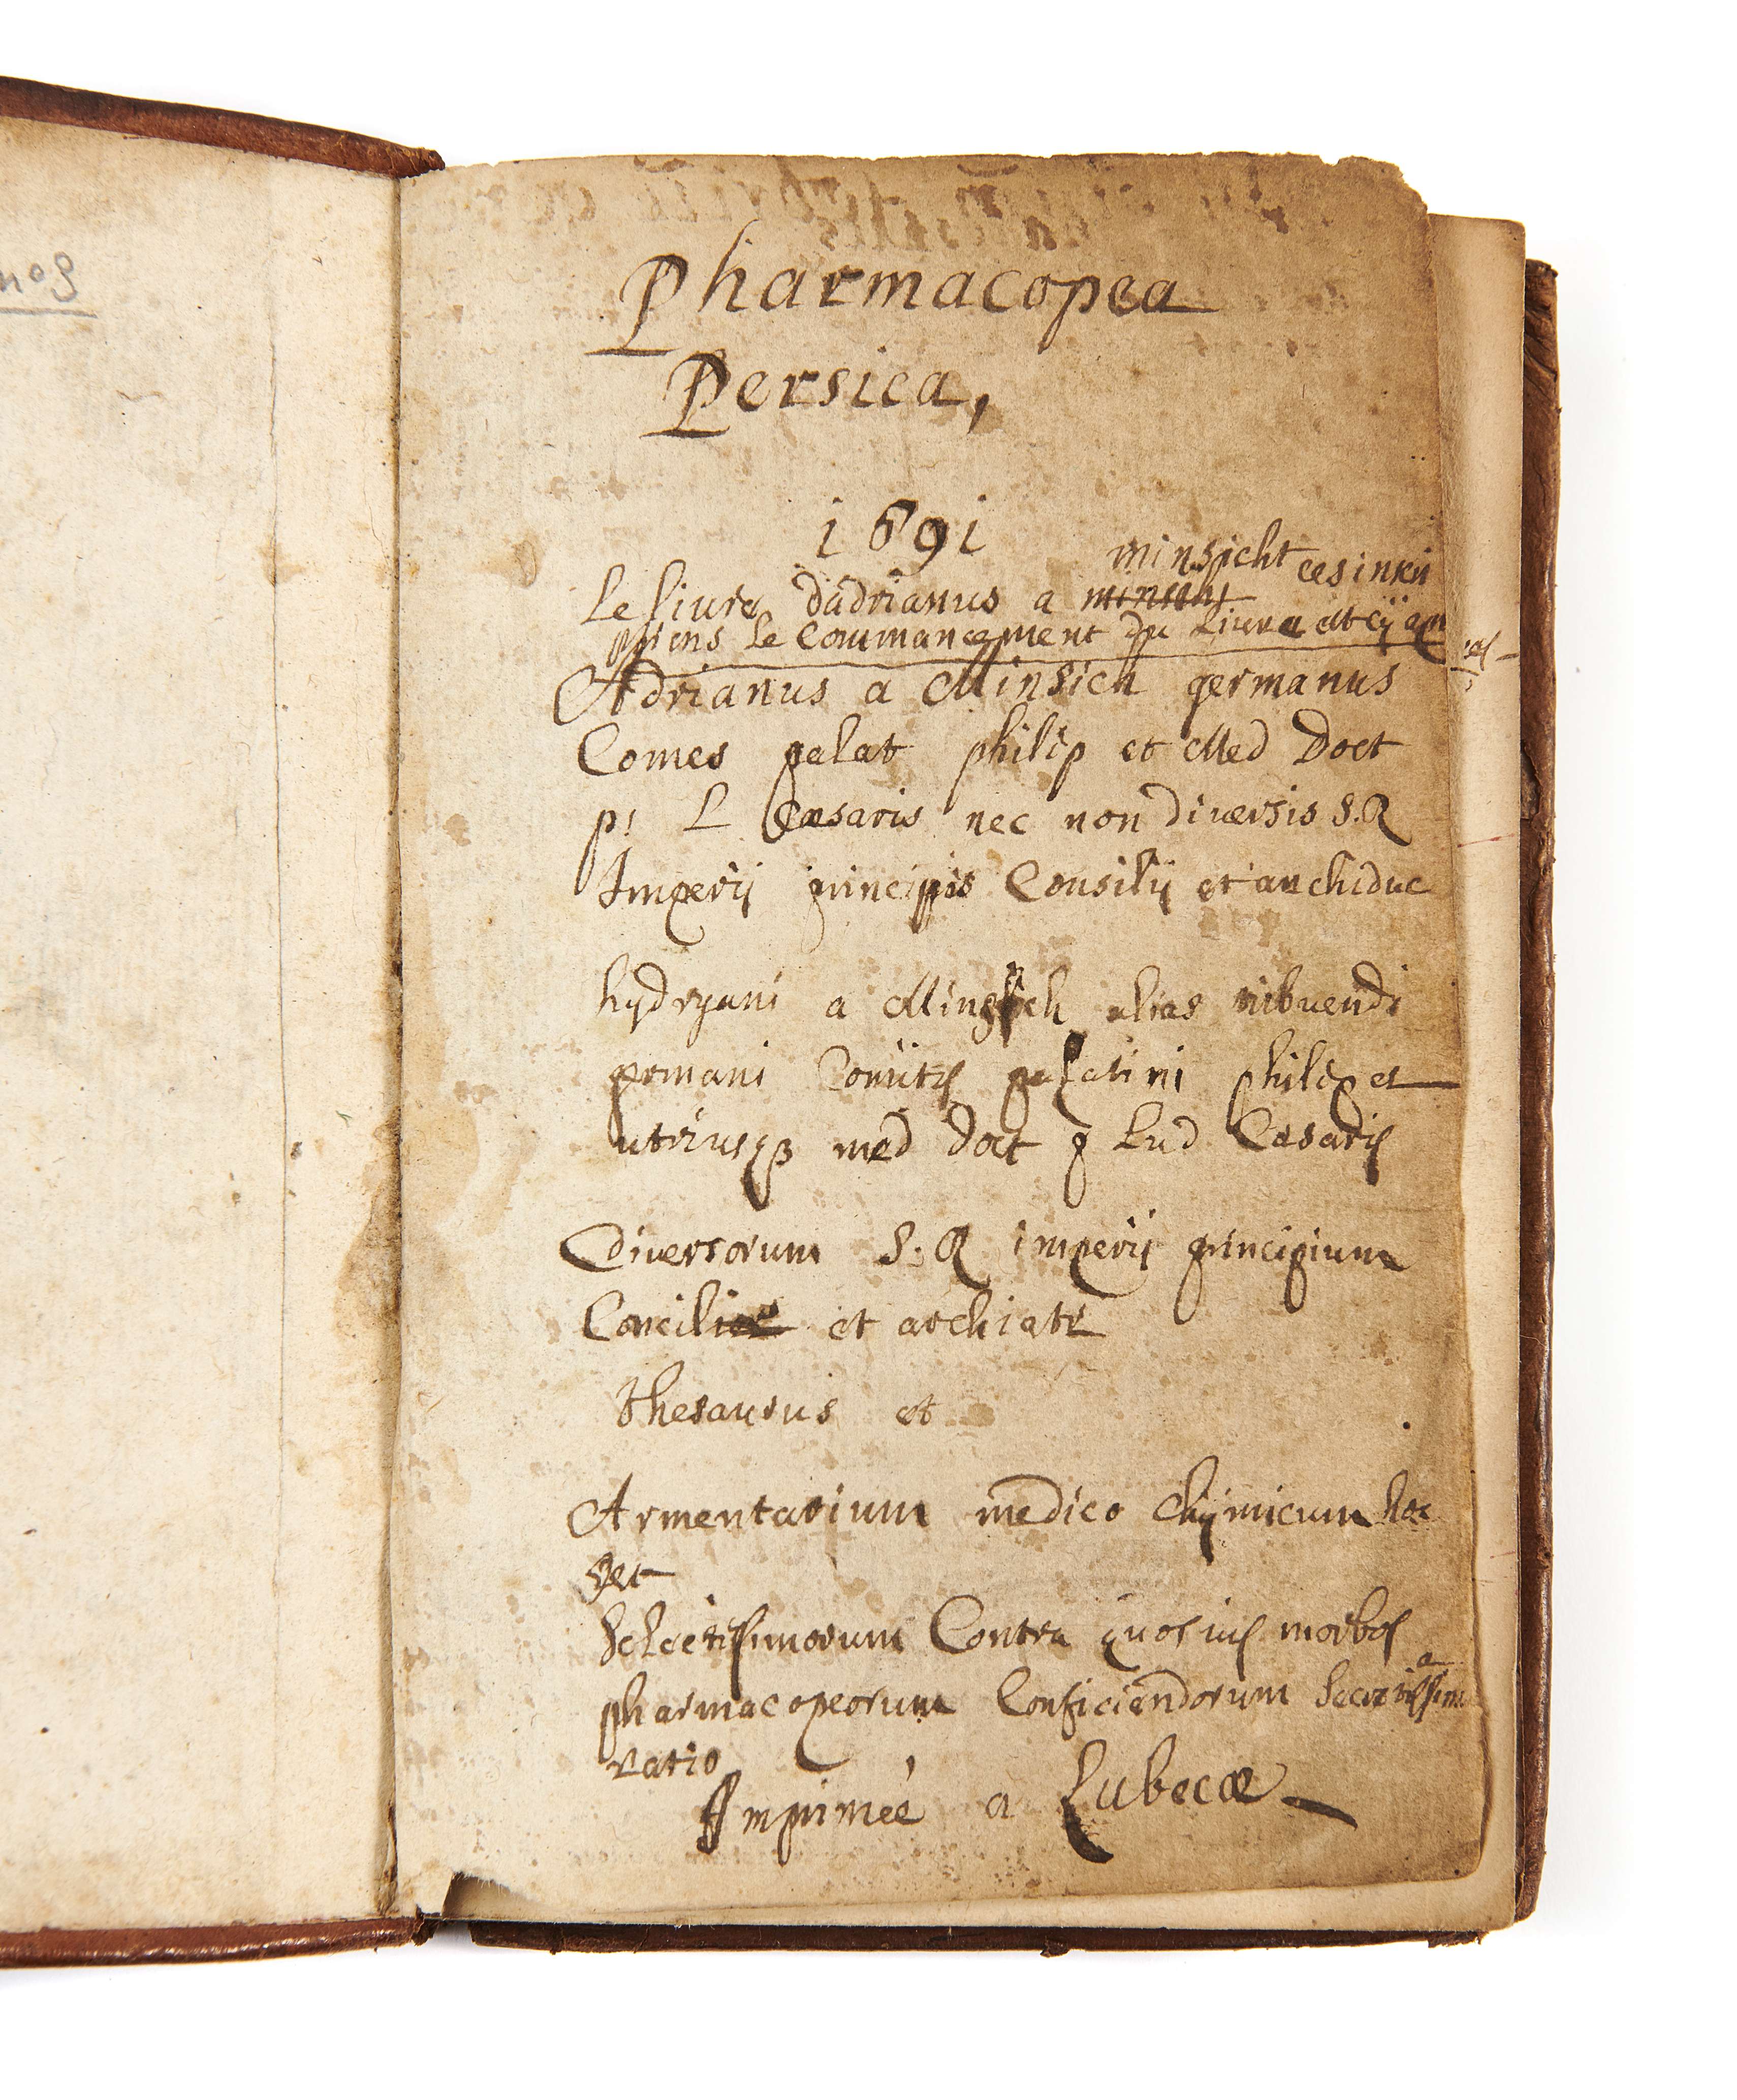 Pharmacopea
Persica,
1691
minsicht
Le liure dadrianus a minsich
le Commancement du Liure et cy
Adrianus a Minsich germanus
Comes palat philip et Med Doct
p! L Cæsaris nec non diversis S.R
Imperij principis Consilij et archiduc
a Minsich alias
germani Comitis palatini philip et
utriusqз med doct p Lud Cæsaris
diversorum S.R imperij principium
Concilior et archiatr
thesaurus et
Armentarium medico chijmicum hoc
est
Selectissimorum Contra quosuis morbos
a
pharmacopeorum Conficiendorum secretissim
ratio
Impimée a Lubecæ